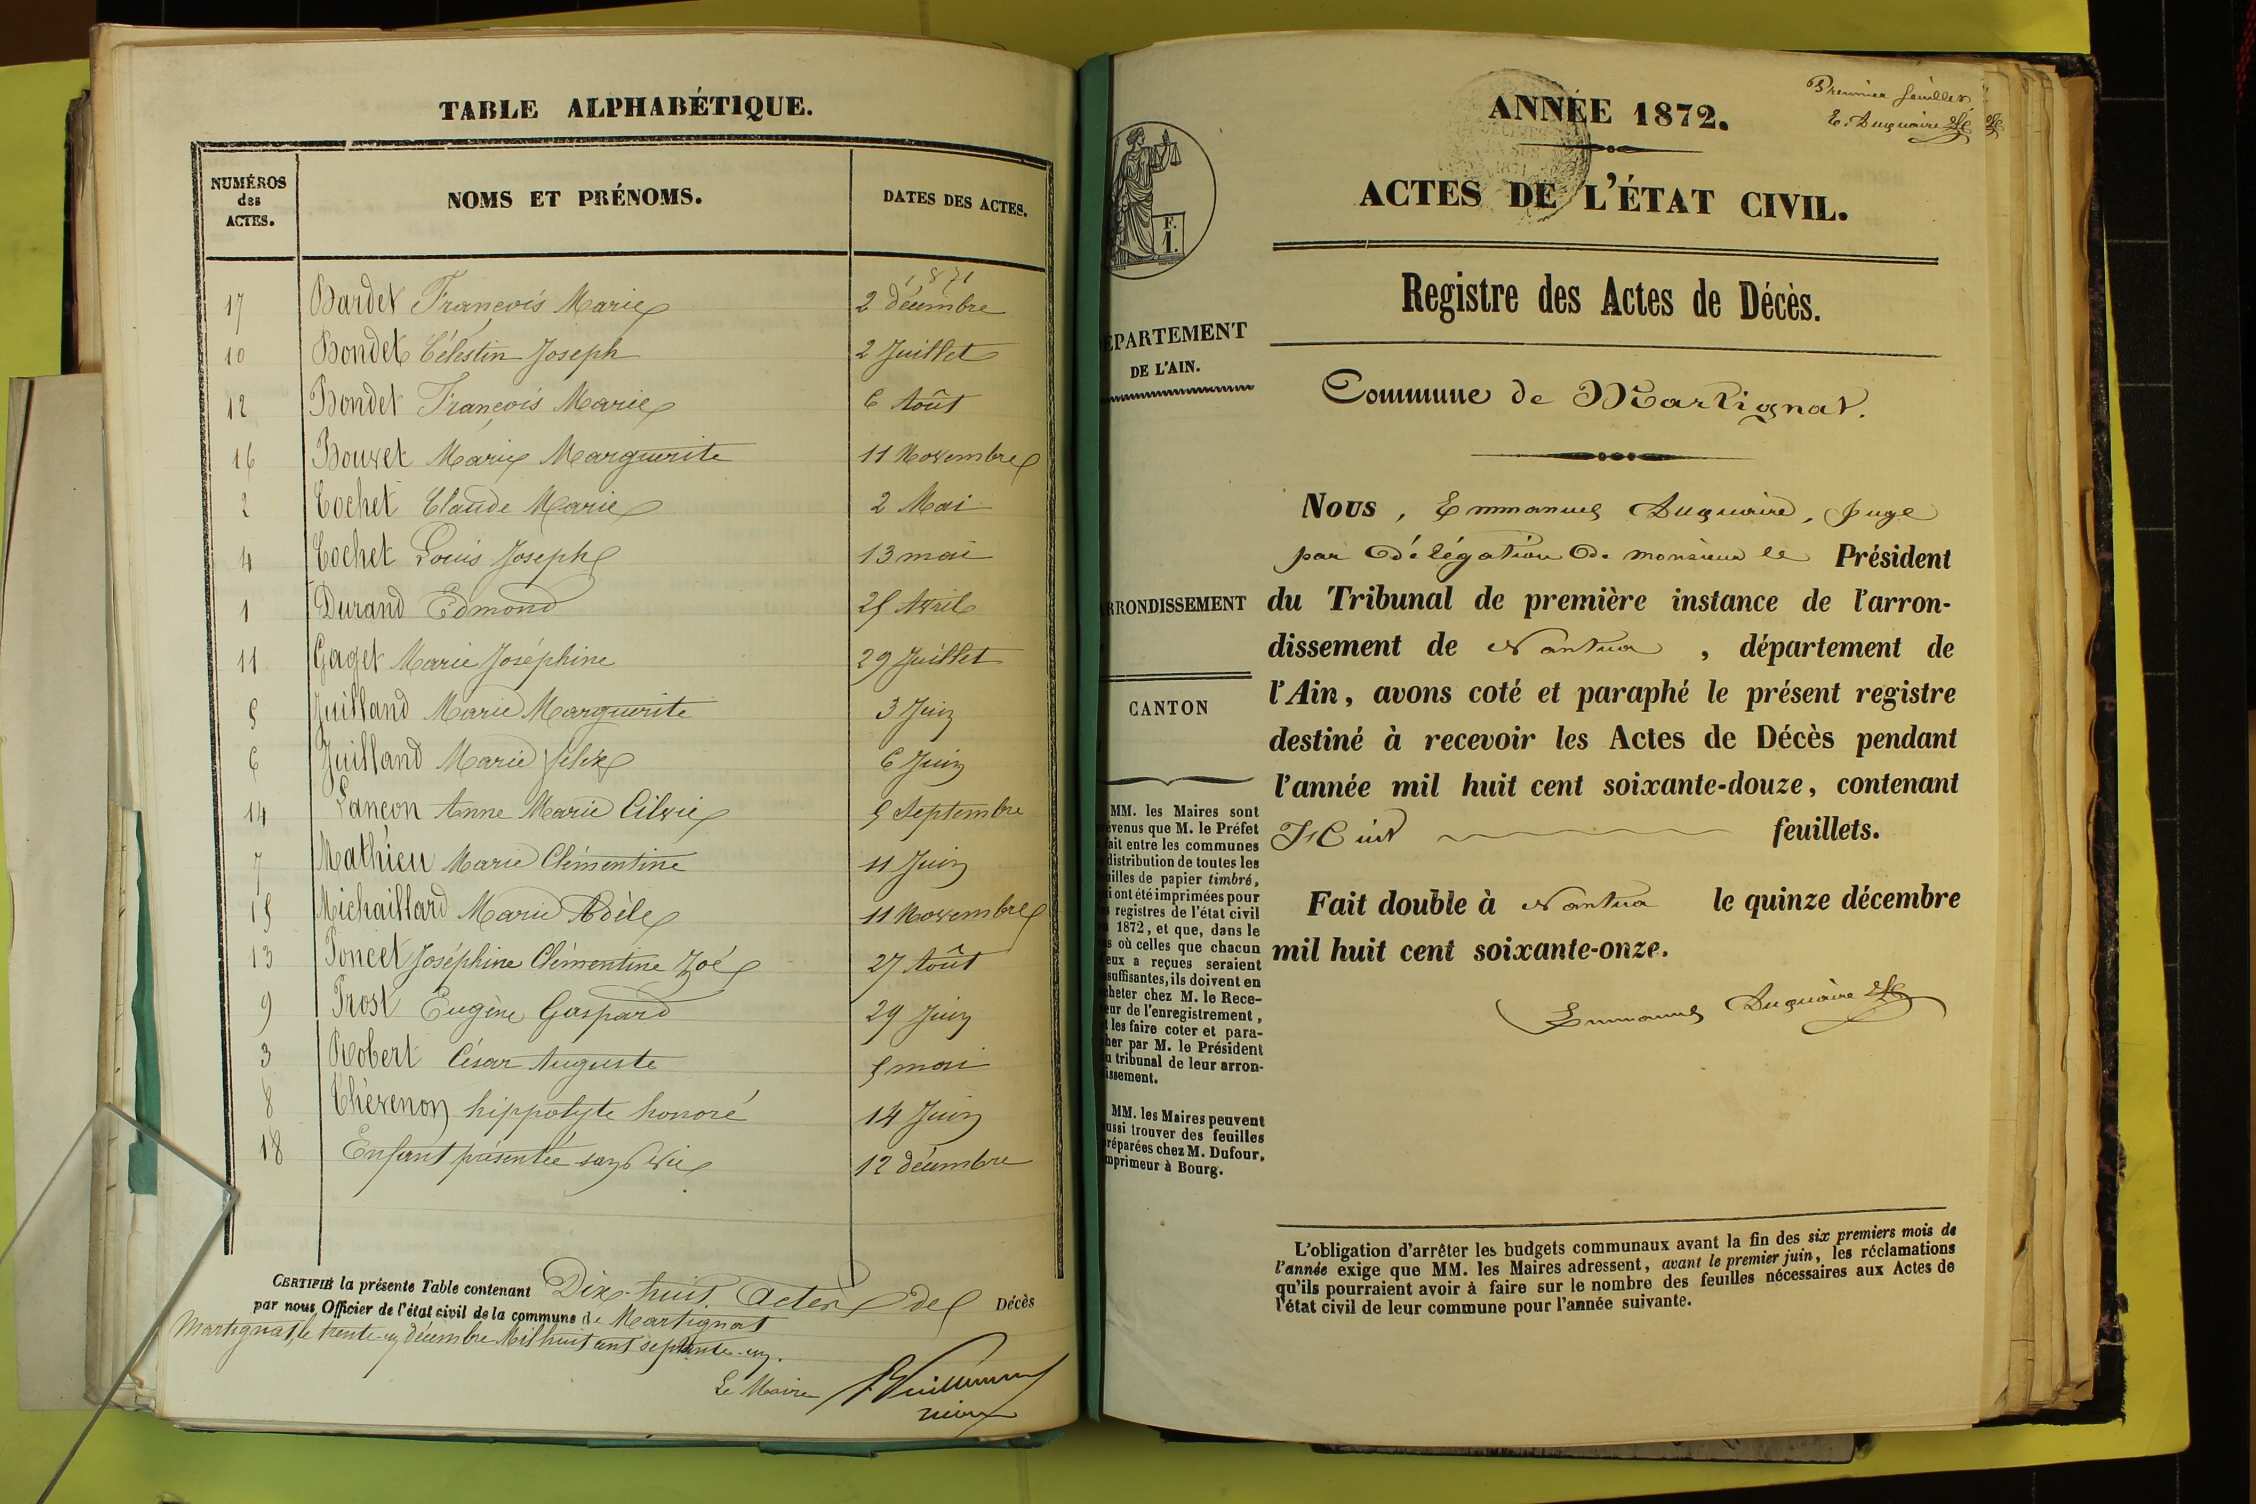 TABLE ALPHABÉTIQUE.
NUMÉROS
des
ACTES.
NOMS ET PRÉNOMS.
DATES DES ACTES.
1871
17 Bardet François Marie 2 décembre
10 Bondet Célestin Joseph 2 Juillet
12 Bondet François Marie 6 Août
16 Bouvet Marie Marguerite 11 Novembre
2 Cochet Claude Marie 2 Mai
4 Cochet Louis Joseph 13 mai
1 Durand Edmond 25 Avril
11 Gaget Marie Joséphine 29 Juillet
5 Juilland Marie Marguerite 3 Juin
6 Juilland Marie Félix 6 Juin
14 Lançon Anne Marie Cilvie 5 Septembre
7 Mathieu Marie Clémentine 11 Juin
15 Michaillard Marie Adèle 11 Novembre
13 Poncet Joséphine Clémentine Zoé 27 Août
9 Prost Eugène Gaspard 29 Juin
3 Robert César Auguste 5 mai
8 Thévenon hippolyte honoré 14 Juin
18 Enfant présentée sans vie 12 décembre
CERTIFIÉ la présente Table contenant Dix-huit actes de Décès
par nous, Officier de l'état civil de la commune de Martignat
Martignat, le trente-un décembre Mil huit cent septante-un.
Le Maire
ANNÉE 1872.
Premier feuillet
E. Duquaire
ACTES DE L'ÉTAT CIVIL.
F.
1.
Registre des Actes de Décès.
ÉPARTEMENT
DE L'AIN.
Commune de Martignat.
RRONDISSEMENT
CANTON
MM. les Maires sont
évenus que M. le Préfet
fait entre les communes
distribution de toutes les
uilles de papier timbré,
i ont été imprimées pour
registres de l'état civil
1872, et que, dans le
s où celles que chacun
eux a reçues seraient
suffisantes, ils doivent en
heter chez M. le Rece-
eur de l'enregistrement,
les faire coter et para-
her par M. le Président
u tribunal de leur arron-
issement.
MM. les Maires peuvent
ussi trouver des feuilles
réparées chez M. Dufour,
mprimeur à Bourg.
Nous, Emmanuel Duquaire, Juge
par délégation de monsieur le Président
du Tribunal de première instance de l'arron-
dissement de Nantua, département de
l'Ain, avons coté et paraphé le présent registre
destiné à recevoir les Actes de Décès pendant
l'année mil huit cent soixante-douze, contenant
Huit feuillets.
Fait double à Nantua le quinze décembre
mil huit cent soixante-onze.
Emmanuel Duquaire
L'obligation d'arrêter les budgets communaux avant la fin des six premiers mois de
l'année exige que MM. les Maires adressent, avant le premier juin, les réclamations
qu'ils pourraient avoir à faire sur le nombre des feuilles nécessaires aux Actes de
l'état civil de leur commune pour l'année suivante.